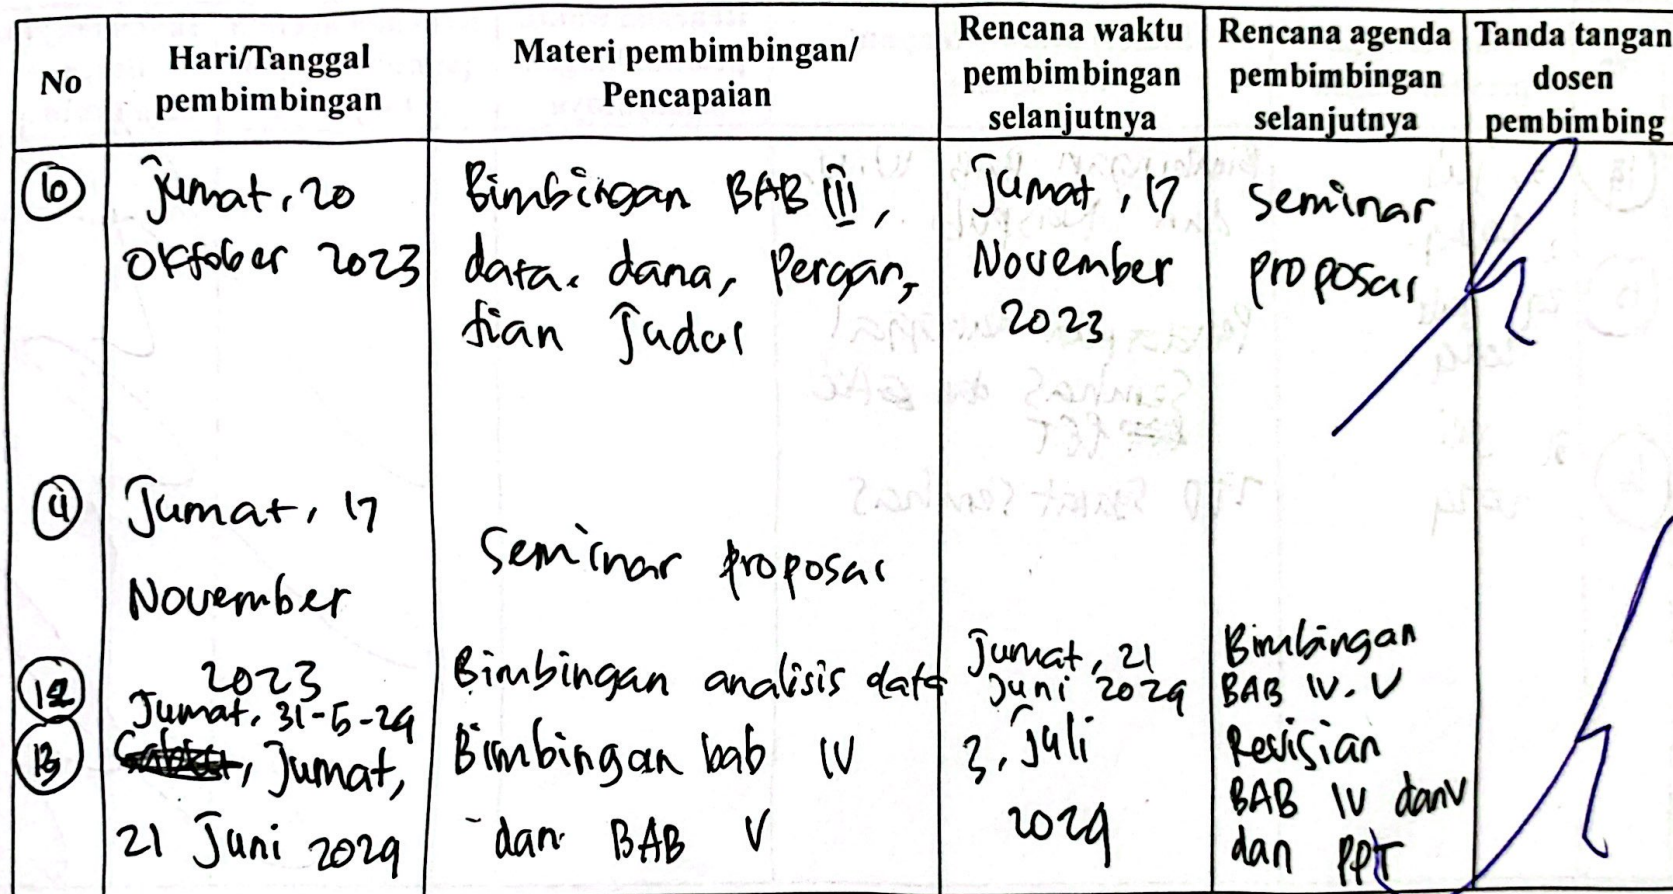 No
Hari/Tanggal
pembimbingan
Materi pembimbingan/
Pencapaian
Rencana waktu
pembimbingan
selanjutnya
Rencana agenda
pembimbingan
selanjutnya
Tanda tangan
dosen
pembimbing
10
Jumat, 20
Oktober 2023
Bimbingan BAB III,
data, dana, Pergan,
tian Judul
Jumat, 17
November
2023
Seminar
proposal
11
Jumat, 17
November
2023
Seminar proposal
12
Jumat, 31-5-24
Bimbingan analisis data
Jumat, 21
Juni 2024
Bimbingan
BAB IV. V
13
Jumat,
21 Juni 2024
Bimbingan bab IV
- dan BAB V
3, Juli
2024
Revisian
BAB IV dan V
dan PPT